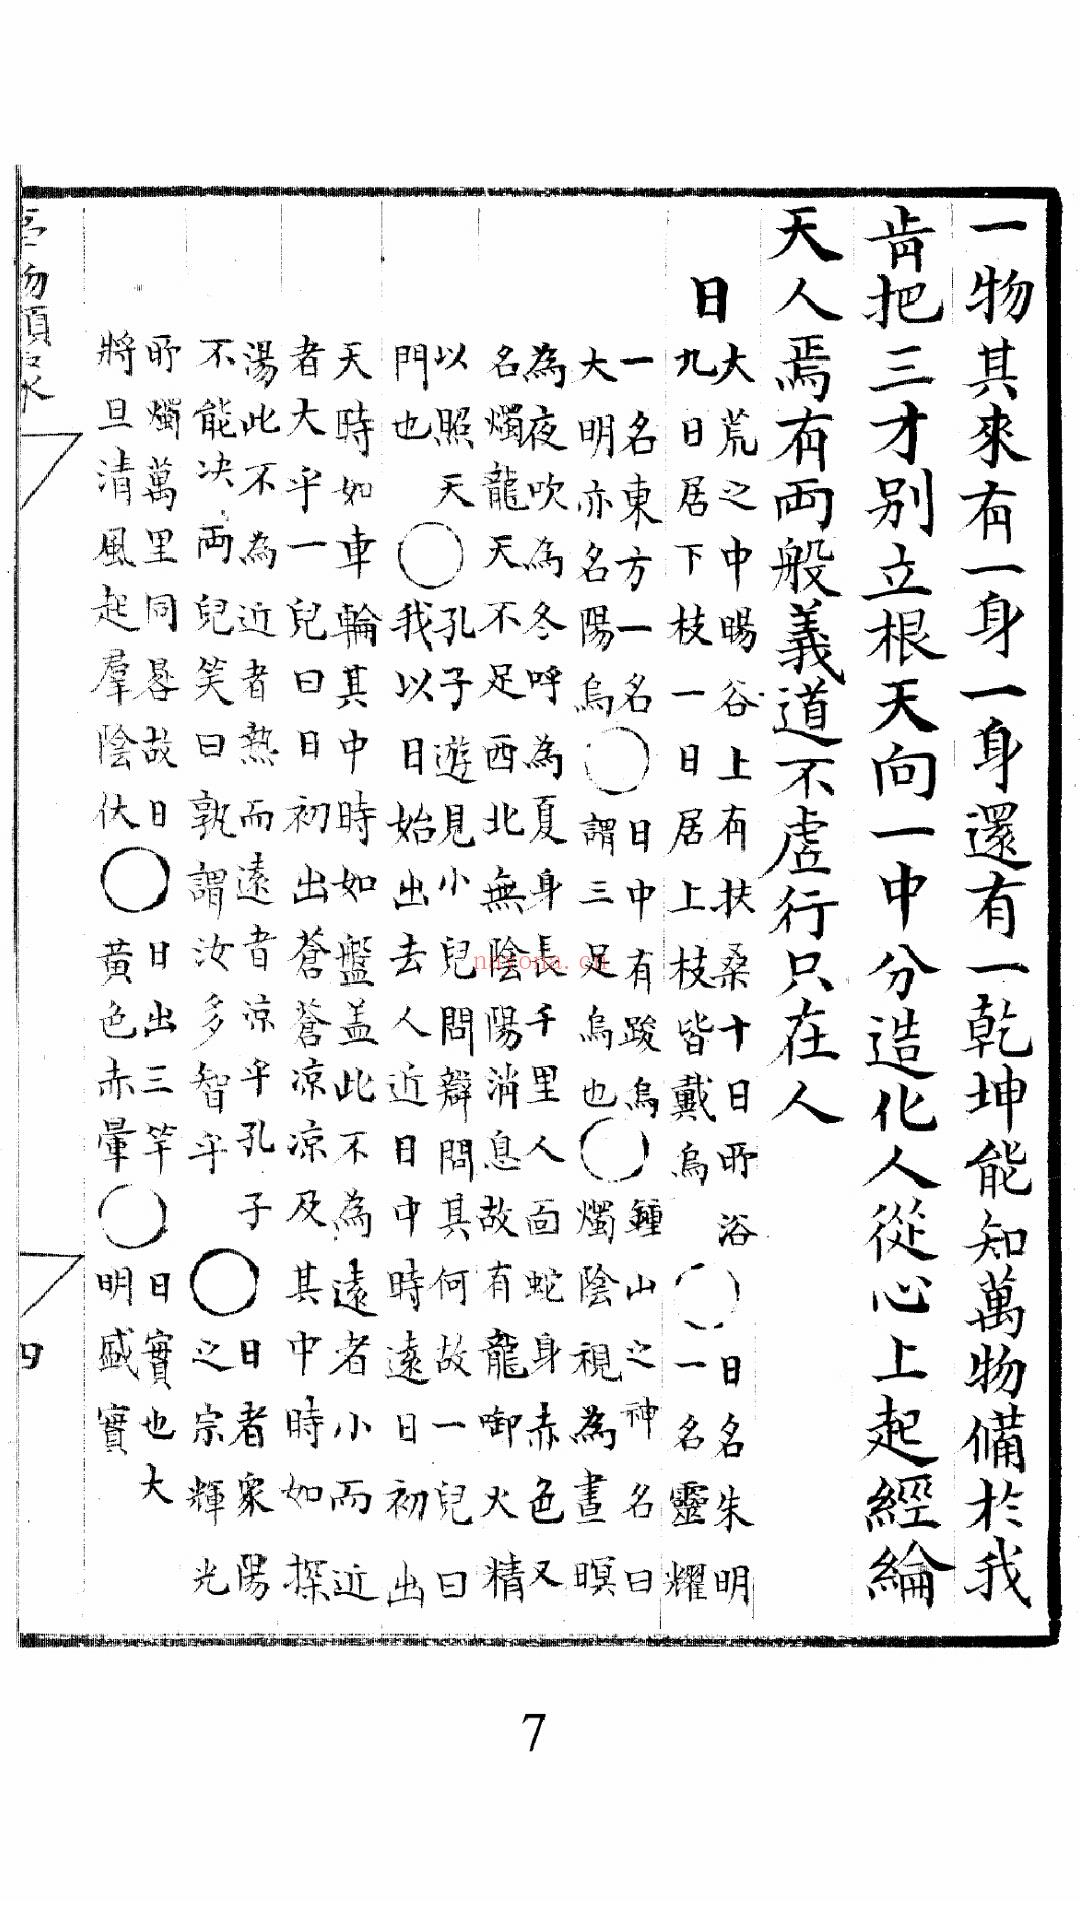 一物其來有一身一身還有一乾坤能知萬物備於我
肯把三才別立根天向一中分造化人從心上起經綸
天人焉有兩般義道不虛行只在人
日
大荒之中暘谷上有扶桑十日所浴〇日名朱明
九日居下枝一日居上枝皆戴烏〇一名靈耀
一名東方一名〇日中有踆烏〇鍾山之神名曰
大明亦名陽烏〇謂三足烏也〇燭陰視為晝暝
為夜吹為冬呼為夏身長千里人面蛇身赤色又
名燭龍天不足西北無陰陽消息故有龍啣火精
以照天〇孔子遊見小兒問辯問其何故一兒曰
門也〇我以日始出去人近日中時遠日初出
天時如車輪其中時如盤蓋此不為遠者小而近
者大乎一兒曰日初出蒼蒼凉凉及其中時如探
湯此不為近者熱而遠者凉乎孔子〇日者衆陽
不能決兩兒笑曰孰謂汝多智乎〇之宗輝光
所燭萬里同晷故日〇日出三竿〇日實也大
將旦清風起羣陰伏〇黃色赤暈〇明盛實
物類
四
nayona.cn
7